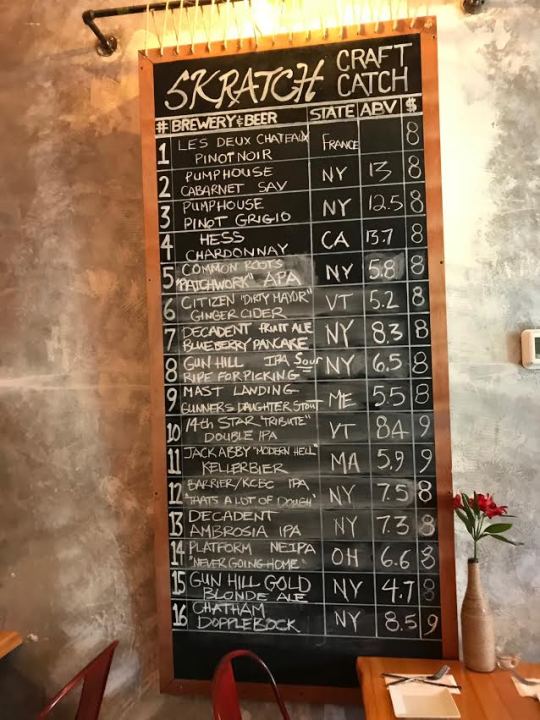 SKRATCH CRAFT CATCH
# BREWERY & BEER STATE ABV $
1 LES DEUX CHATEAUX FRANCE 8
PINOT NOIR
2 PUMPHOUSE NY 13 8
CABARNET SAV
3 PUMPHOUSE NY 12.5 8
PINOT GRIGIO
4 HESS CA 13.7 8
CHARDONNAY
5 COMMON ROOTS NY 5.8 8
"PATCHWORK" APA
6 CITIZEN "DIRTY MAYOR" VT 5.2 8
GINGER CIDER
7 DECADENT FRUIT ALE NY 8.3 8
BLUEBERRY PANCAKE
8 GUN HILL IPA Sour NY 6.5 8
RIPE FOR PICKING
9 MAST LANDING ME 5.5 8
GUNNERS DAUGHTER STOUT
10 14th STAR "TRIBUTE" VT 8.4 9
DOUBLE IPA
11 JACK ABBY "MODERN HELL" MA 5.9 9
KELLERBIER
12 BARRIER/KCBC IPA NY 7.5 8
"THATS A LOT OF DOUGH"
13 DECADENT NY 7.3 8
AMBROSIA IPA
14 PLATFORM NEIPA OH 6.6 8
"NEVER GOING HOME"
15 GUN HILL GOLD NY 4.7 8
BLONDE ALE
16 CHATHAM NY 8.5 9
DOPPLEBOCK